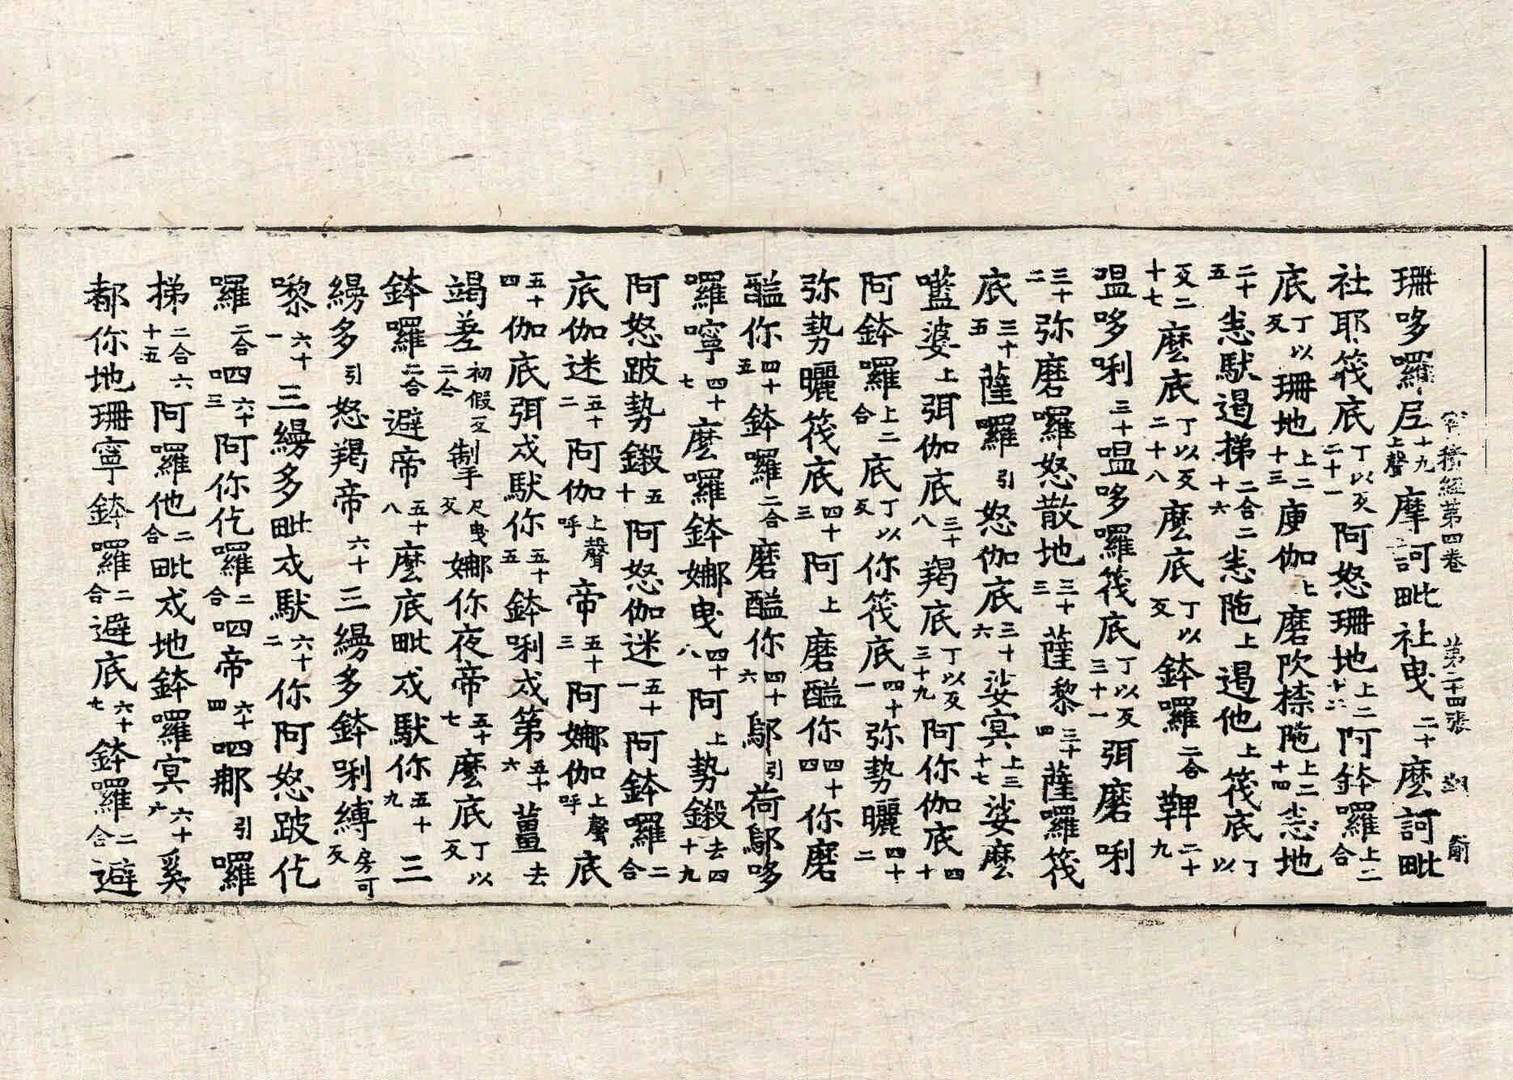 寶積經第四卷 第二十四張
珊哆囉尼十九上聲摩訶毗社曳二十麽訶毗
社耶筏底丁以反二十一阿怒珊地上二十二阿鉢囉上二合
底丁以反珊地上二十三庾伽上磨欣㮈陁上二十四恚地
二十五恚馱遏梯二合二十六恚陁上遏他上筏底丁以
反二十七麽底丁以反二十八麽底丁以反鉢囉二合鞞二十九
嗢哆唎三十嗢哆囉筏底丁以反三十一弭磨唎
三十二弥磨囉怒散地三十三薩黎三十四薩囉筏
底三十五薩囉引怒伽底三十六娑冥上三十七娑麽
㘕婆上弭伽底三十八羯底丁以反三十九阿你伽底四十
阿鉢囉上二合底丁以反你筏底四十一弥勢曬四十二
弥勢曬筏底四十三阿上磨醯你四十四你磨
醯你四十五鉢囉二合磨醯你四十六鄔引荷鄔哆
囉嚀四十七麽囉鉢娜曳四十八阿上勢鍛去四十九
阿怒跛勢鍛五十阿怒伽迷五十一阿鉢囉二合
底伽迷五十二阿伽上聲呼帝五十三阿娜伽上聲呼底
五十四伽底弭戍馱你五十五鉢唎戍第五十六薑去
竭差初假反二合制手尺曳反娜你夜帝五十七麽底丁以反
鉢囉二合避帝五十八麽底毗戍馱你五十九三
縵多引怒羯帝六十三縵多鉢唎縛房可反
嚟六十一三縵多毗戍馱六十二你阿怒跛仡
囉二合呬六十三阿你仡囉二合呬帝六十四呬那引囉
梯二合六十五阿囉他二合毗戍地鉢囉冥六十六奚
都你地珊寧鉢囉二合避底六十七鉢囉二合避